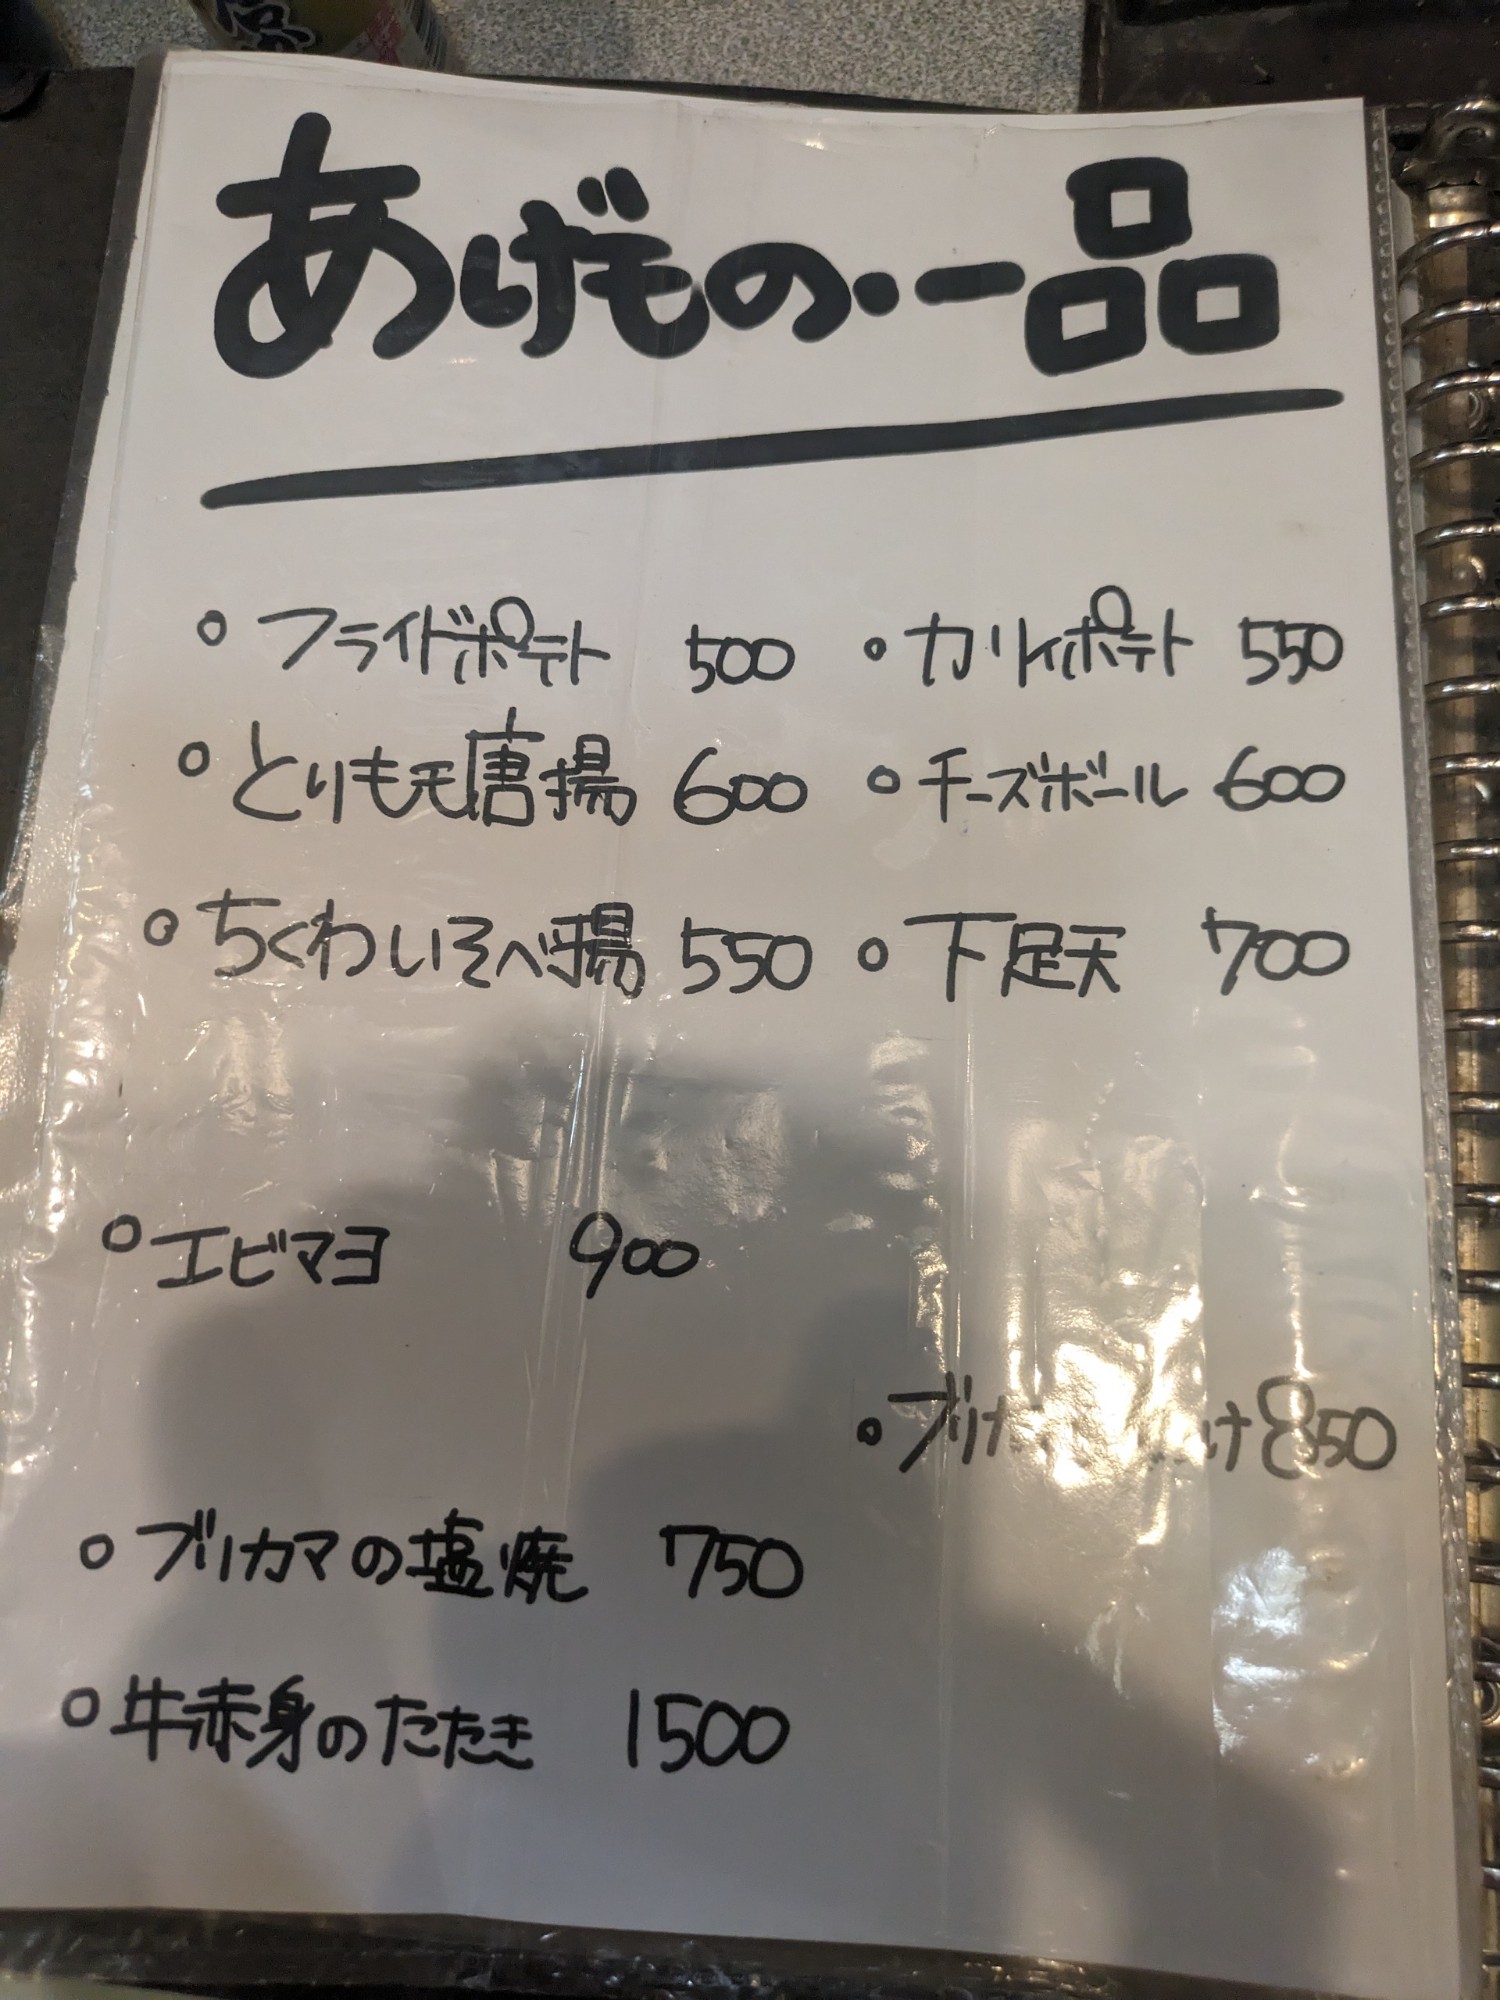 あげもの・一品
○ フライドポテト 500
○ カリィポテト 550
○ とりもも唐揚 600
○ チーズボール 600
○ ちくわいそべ揚 550
○ 下足天 700
○ エビマヨ 900
○ ブリカ 850
○ ブリカマの塩焼 750
○ 牛赤身のたたき 1500